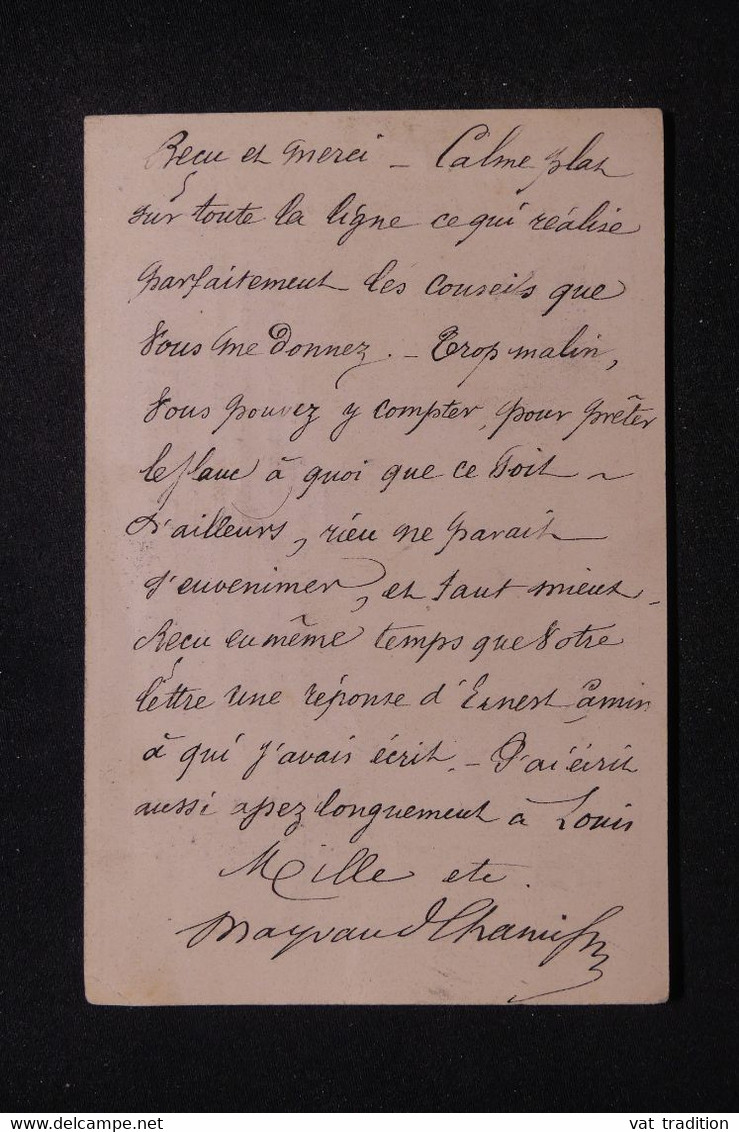 Reçu et merci _ Calme plat
sur toute la ligne ce qui réalise
parfaitement les conseils que
vous me donnez. _ Trop malin,
vous pouvez y compter, pour prêter
le flanc à quoi que ce soit ~
D'ailleurs, rien ne parait
s'envenimer, et tant mieux _
Reçu en même temps que votre
lettre une réponse d'Ernest Camin
à qui j'avais écrit. _ J'ai écrit
aussi assez longuement à Louis
Mille etc.
© www.delcampe.net
vat tradition